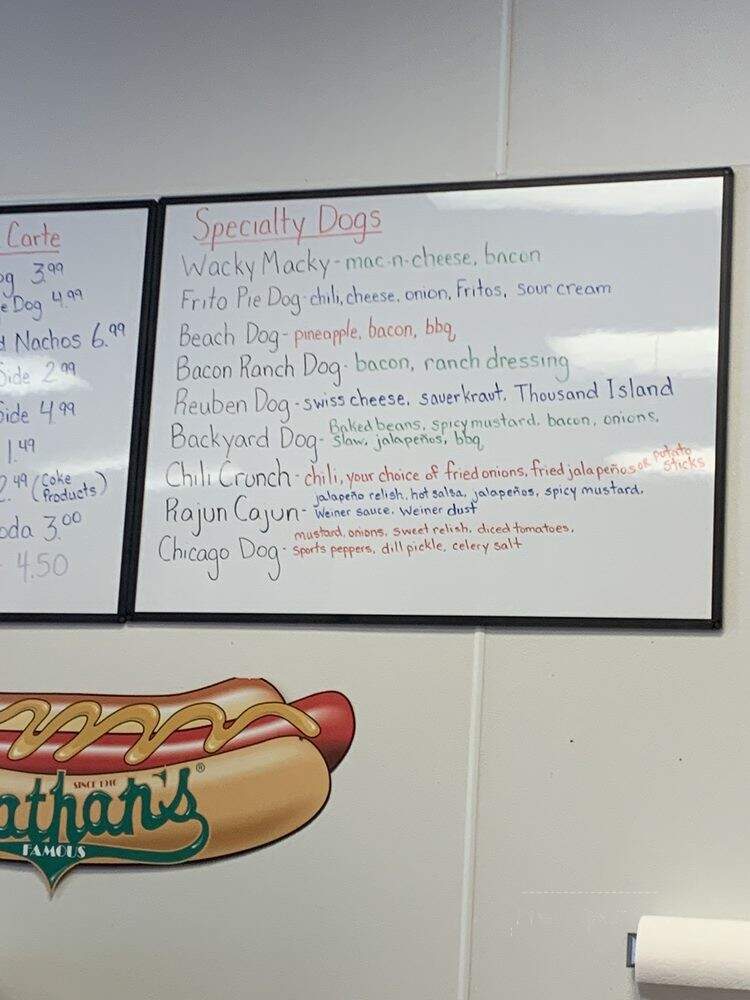 Carte
3.99
Dog 4.99
Nachos 6.99
Side 2.99
Side 4.99
1.49
2.49 (Coke Products)
3.00
4.50
Specialty Dogs
Wacky Macky - mac-n-cheese, bacon
Frito Pie Dog - chili, cheese, onion, Fritos, sour cream
Beach Dog - pineapple, bacon, bbq
Bacon Ranch Dog - bacon, ranch dressing
Reuben Dog - swiss cheese, sauerkraut, Thousand Island
Backyard Dog - Baked beans, spicy mustard, bacon, onions,
slaw, jalapeños, bbq
Chili Crunch - chili, your choice of fried onions, fried jalapeños or potato sticks
Rajun Cajun - jalapeño relish, hot salsa, jalapeños, spicy mustard,
Weiner sauce, Weiner dust
Chicago Dog - mustard, onions, sweet relish, diced tomatoes,
sports peppers, dill pickle, celery salt
SINCE 1916
athan's ®
FAMOUS